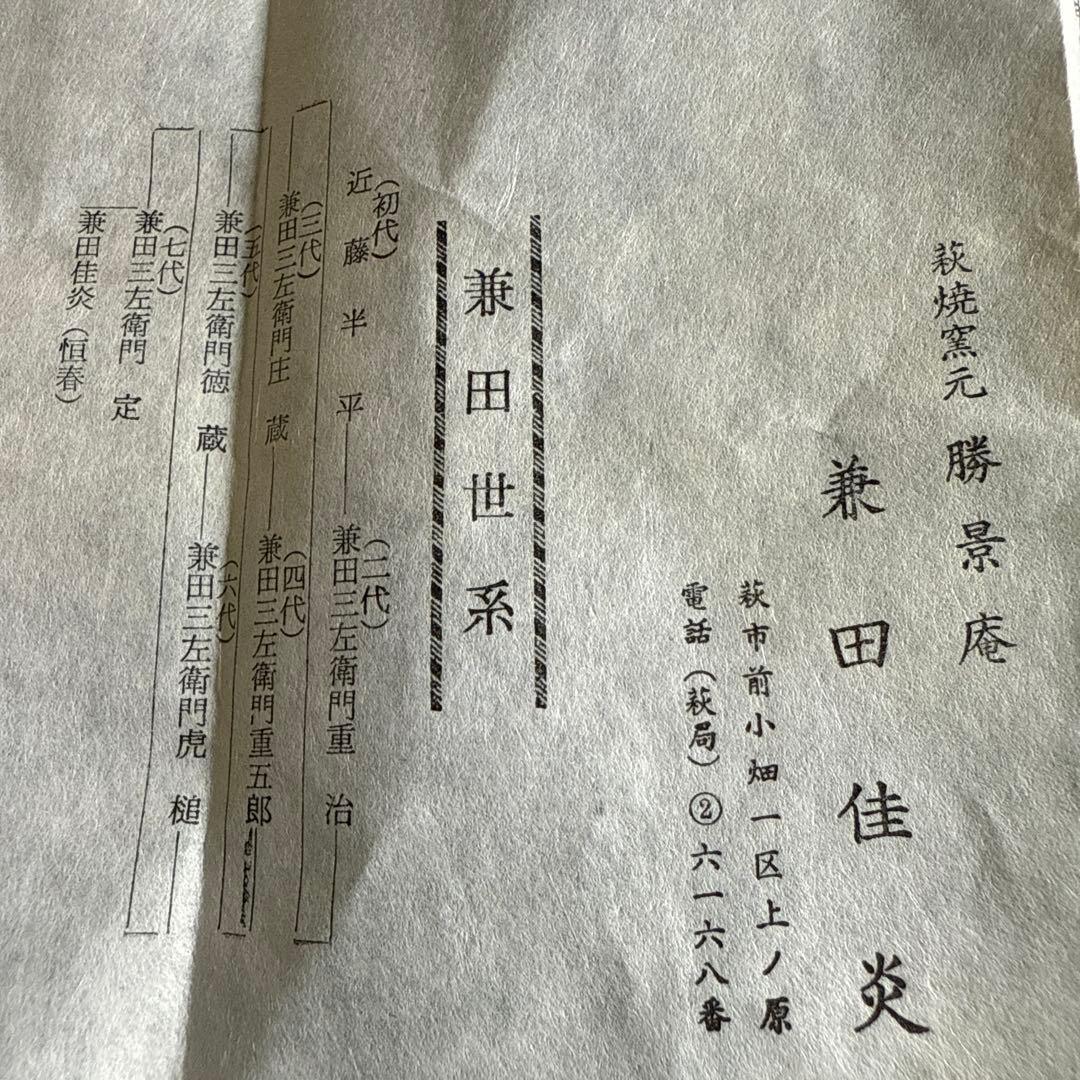 萩焼窯元 勝景庵
兼田佳炎
萩市前小畑一区上ノ原
電話(萩局)②六一六八番
兼田世系
(初代)
近藤半平
(二代)
兼田三左衛門重治
(三代)
兼田三左衛門庄蔵
(四代)
兼田三左衛門重五郎
(五代)
兼田三左衛門徳蔵
(六代)
兼田三左衛門虎槌
(七代)
兼田三左衛門 定
兼田佳炎(恒春)